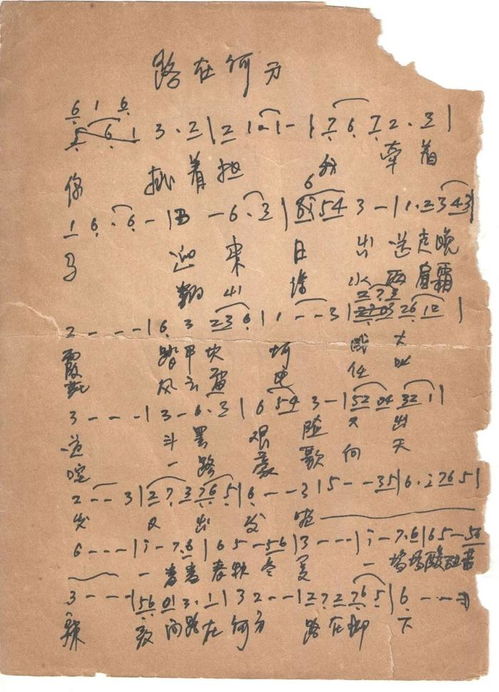 路在何方
6 1 6
6 1 | 3 · 2 | 2 1 - 1 - | 7 6 7 2 · 3 |
你 挑着担 我 牵着
1 6 · 6 - | 3 - 6 · 3 | 54 3 - | 1 · 2 3 43 |
马 迎来日出送走晚
翻山涉水两肩霜
2 - - - | 6 · 3 23 6 | 1 - - 3 |
霞 踏平坎坷成大
风云雷电任
3 - - - | 3 - 6 · 3 | 6 54 3 - | 32 1 |
道 斗罢艰险又出
一路豪歌向天
2 - - 3 | 2 7 3 76 5 | 6 - - - 3 | 5 - - 35 | 6 · i 76 5 |
发 又出发 啦
6 - - - | i - 7 · 6 | 6 5 - 56 | 3 - - - | i - 7 · 6 | 6 5 - 56
一番番春秋冬夏 一场场酸甜苦
3 - - - | 56 01 3 · 1 | 3 2 - - | 2 7 2 76 5 | 6 - - -
辣 敢问路在何方 路在脚下